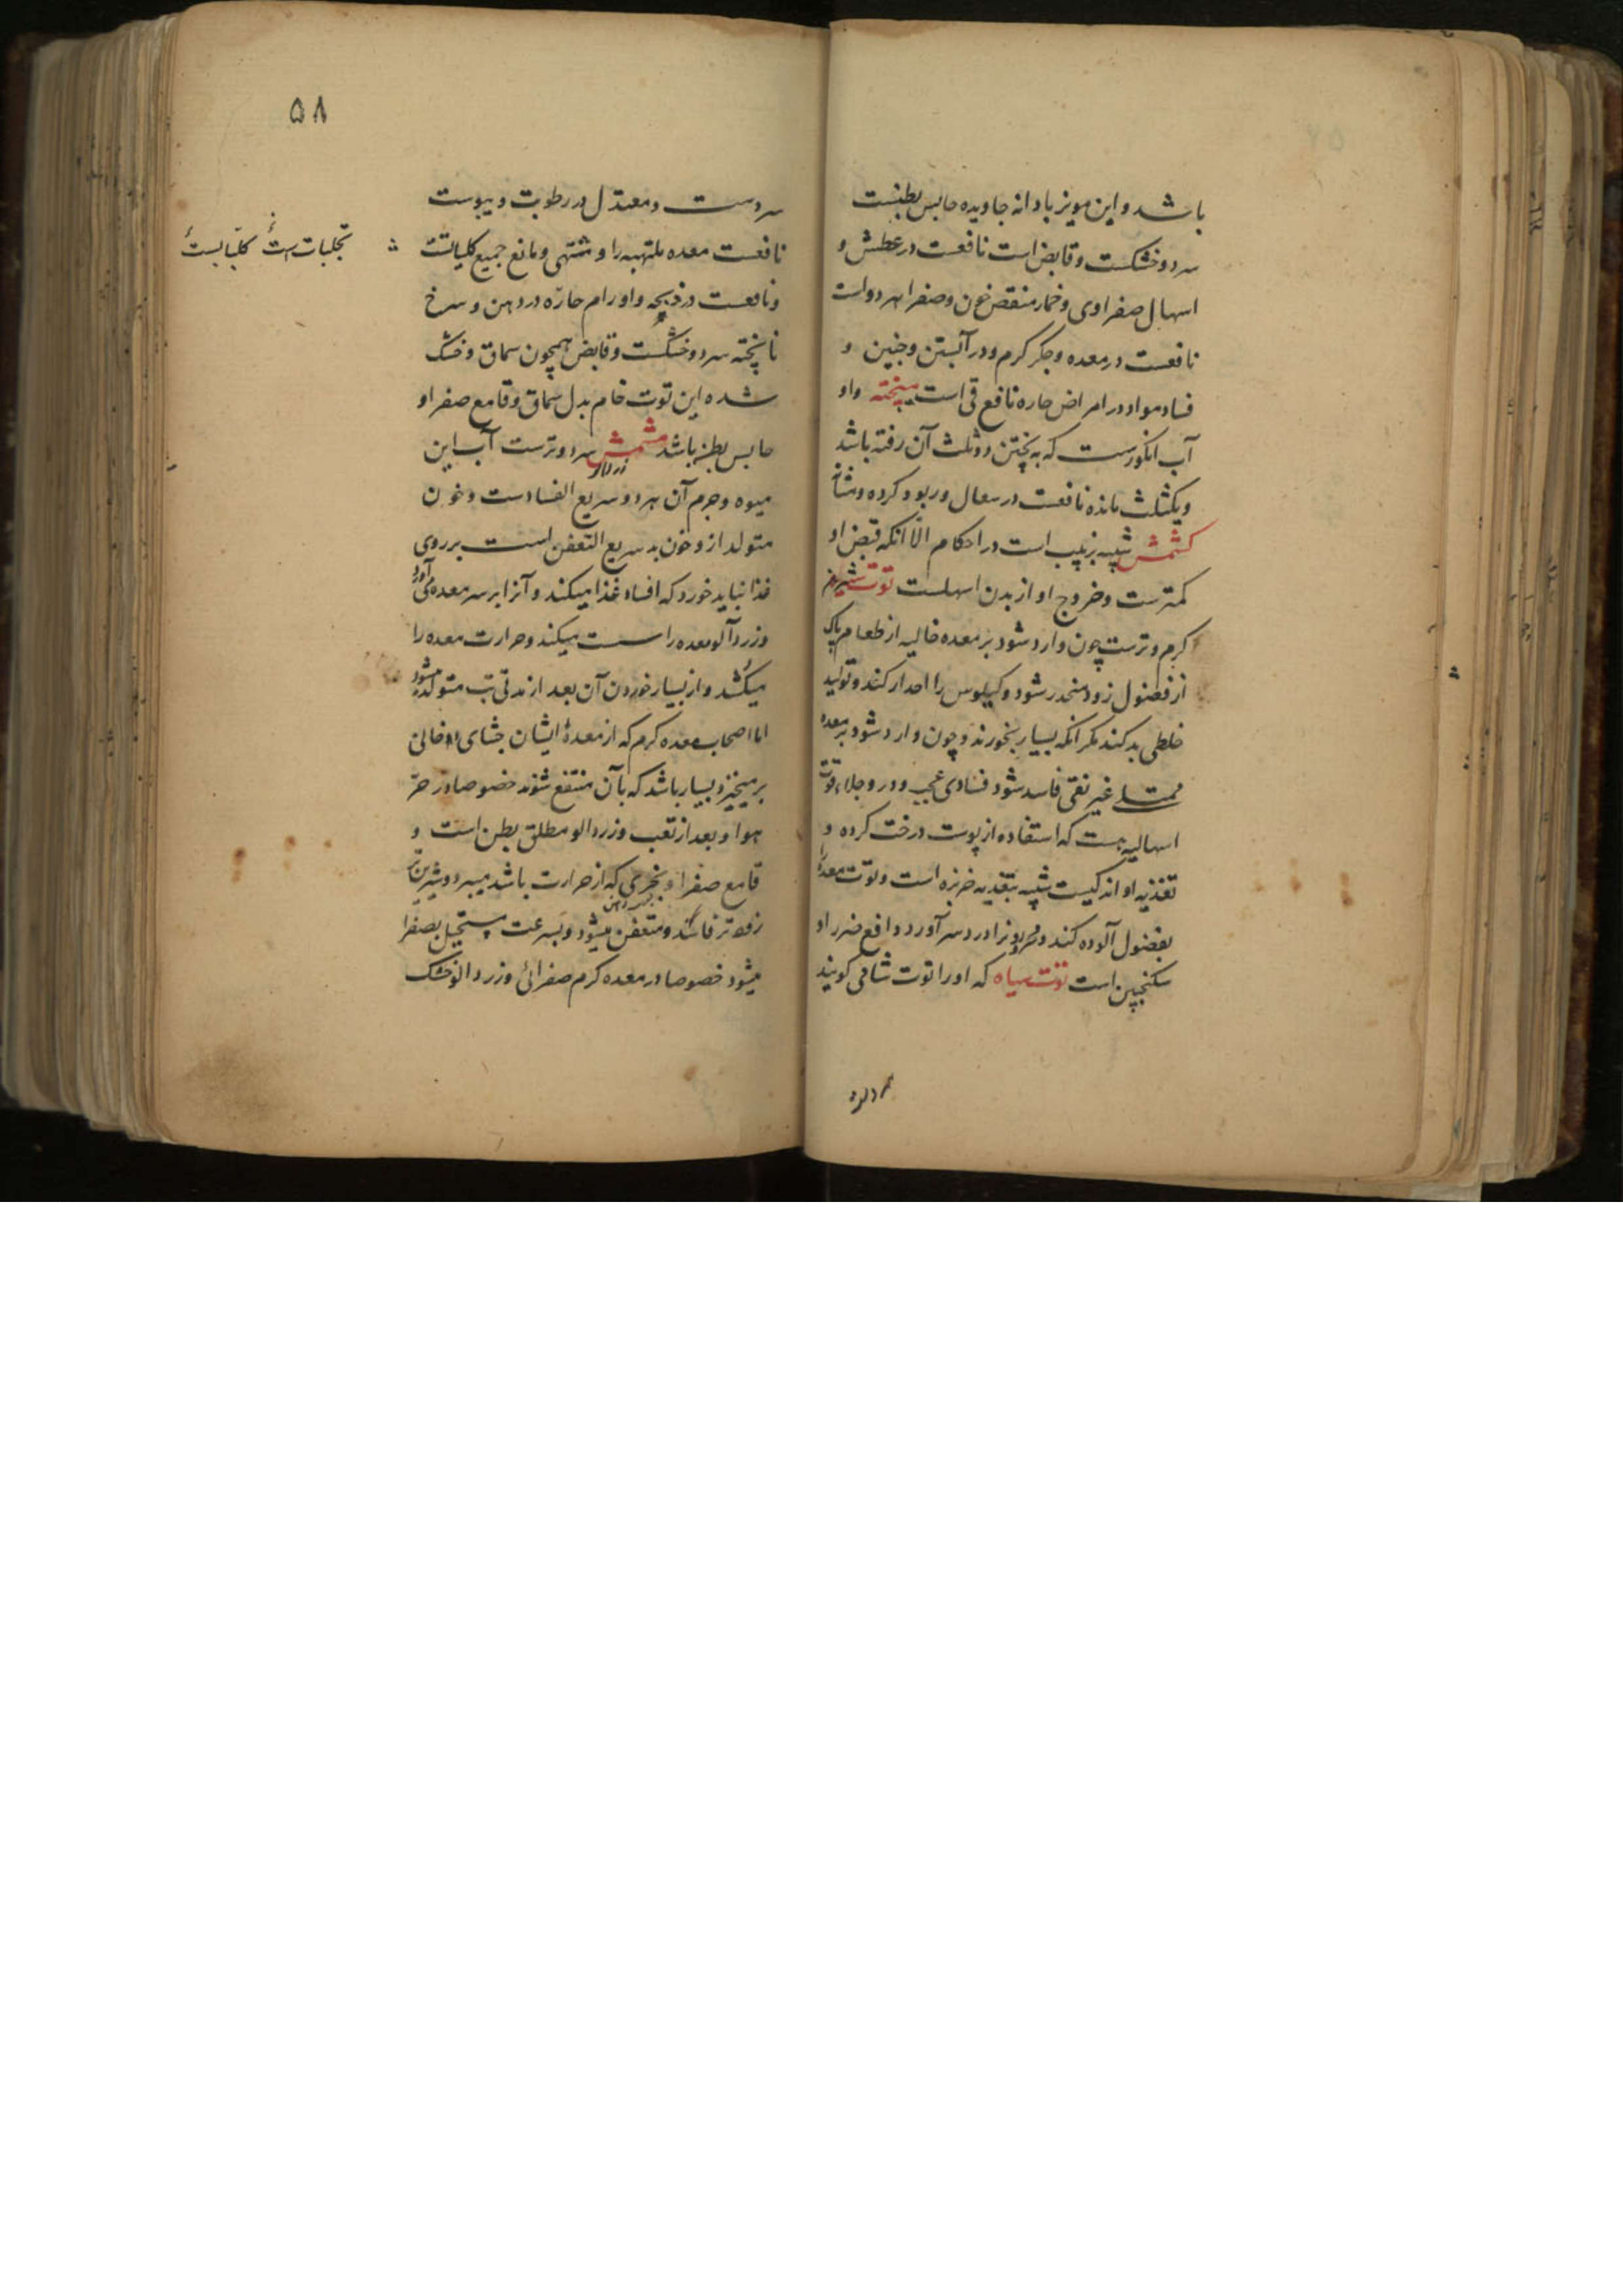 باشد و این مویز با دانه جاویده حابس بطنست
سرد و خشکست و قابض است نافعست در عطش و
اسهال صفراوی و خمار منقص خون و صفرا هر دو است
نافعست در معده و جکر کرم و در آبستن و جنین و
فساد مواد در امراض حاره نافع قی است میپخته و او
آب انکورست که به پختن دو ثلث آن رفته باشد
و یکثلث مانده نافعست در سعال و ربو و کرده و مثانه
کشمش شبیه بزبیب است در احکام الّا انکه قبض او
کمترست و خروج او از بدن اسهلست توت شیرین
کرم و ترست چون وارد شود بر معده خالیه از طعام پاک
از فضول زود منحدر شود و کیلوس را احدار کند و تولید
خلطی بد کند مکر انکه بسیار بخورند و چون وارد شود بر معده
ممتلی غیر نقی فاسد شود فسادی عجب و در و جلاء و قوت
اسهالیه هست که استفاده از پوست درخت کرده و
تغذیه او اندکیست شبیه بتغذیه خربزه است و توت معده را
بفضول آلوده کند و محرور را درد سر آورد و دافع ضرر او
سکنجبین است توت سیاه که او را توت شامی کویند
۵۸
سردست و معتدل در رطوبت و یبوست
نافعست معده ملتهبه را و مشتهی و مانع جمیع کلیاتست
تجلبات است کلبایست
و نافعست در ذبحه و اورام حاره در دهن و سرخ
ناپخته سرد و خشکست و قابض همچون سماق و خشک
شده این توت خام بدل سماق و قامع صفرا و
حابس بطن باشد مشمش سرد و ترست آب این
زردالو
میوه و جرم آن هر دو سریع الفسادست و خون
متولد ازو خون بد سریع التعفن است بر روی
غذا نباید خورد که افساد غذا میکند و آنرا بر سر معده می آورد
و زردآلو معده را سست میکند و حرارت معده را
میکشد و از بسیار خوردن آن بعد از مدتی تب متولد میشود
اما اصحاب معده کرم که از معدهٔ ایشان جشای دخانی
برمیخیزد بسیار باشد که بآن منتفع شوند خصوصا در حرّ
هوا و بعد از تعب و زردالو مطلق بطن است و
قامع صفرا و بخری که از حرارت باشد میبرد و شیرین
زودتر فاسد و متعفن میشود و بسرعت مستحیل بصفرا
میشود خصوصا در معده کرم صفرائی و زردالو خشک